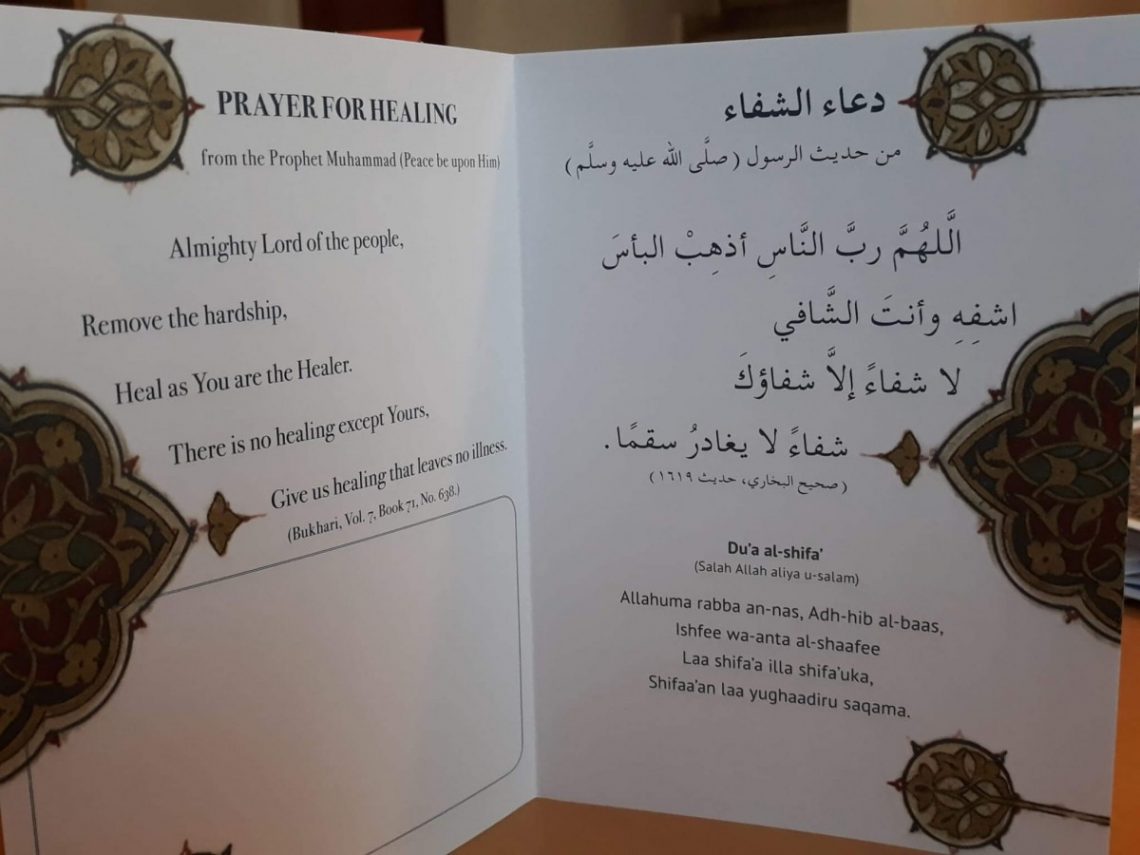 PRAYER FOR HEALING
from the Prophet Muhammad (Peace be upon Him)
Almighty Lord of the people,
Remove the hardship,
Heal as You are the Healer.
There is no healing except Yours,
Give us healing that leaves no illness.
(Bukhari, Vol. 7, Book 71, No. 638.)
دعاء الشفاء
من حديث الرسول (صلَّى الله عليه وسلَّم)
الَّلهُمَّ ربَّ النَّاسِ أذهِبْ البأسَ
اشفِهِ وأنتَ الشَّافي
لا شفاءً إلاَّ شفاؤكَ
شفاءً لا يغادرُ سقمًا.
(صحيح البخاري، حديث ١٦١٩)
Du'a al-shifa'
(Salah Allah aliya u-salam)
Allahuma rabba an-nas, Adh-hib al-baas,
Ishfee wa-anta al-shaafee
Laa shifa'a illa shifa'uka,
Shifaa'an laa yughaadiru saqama.